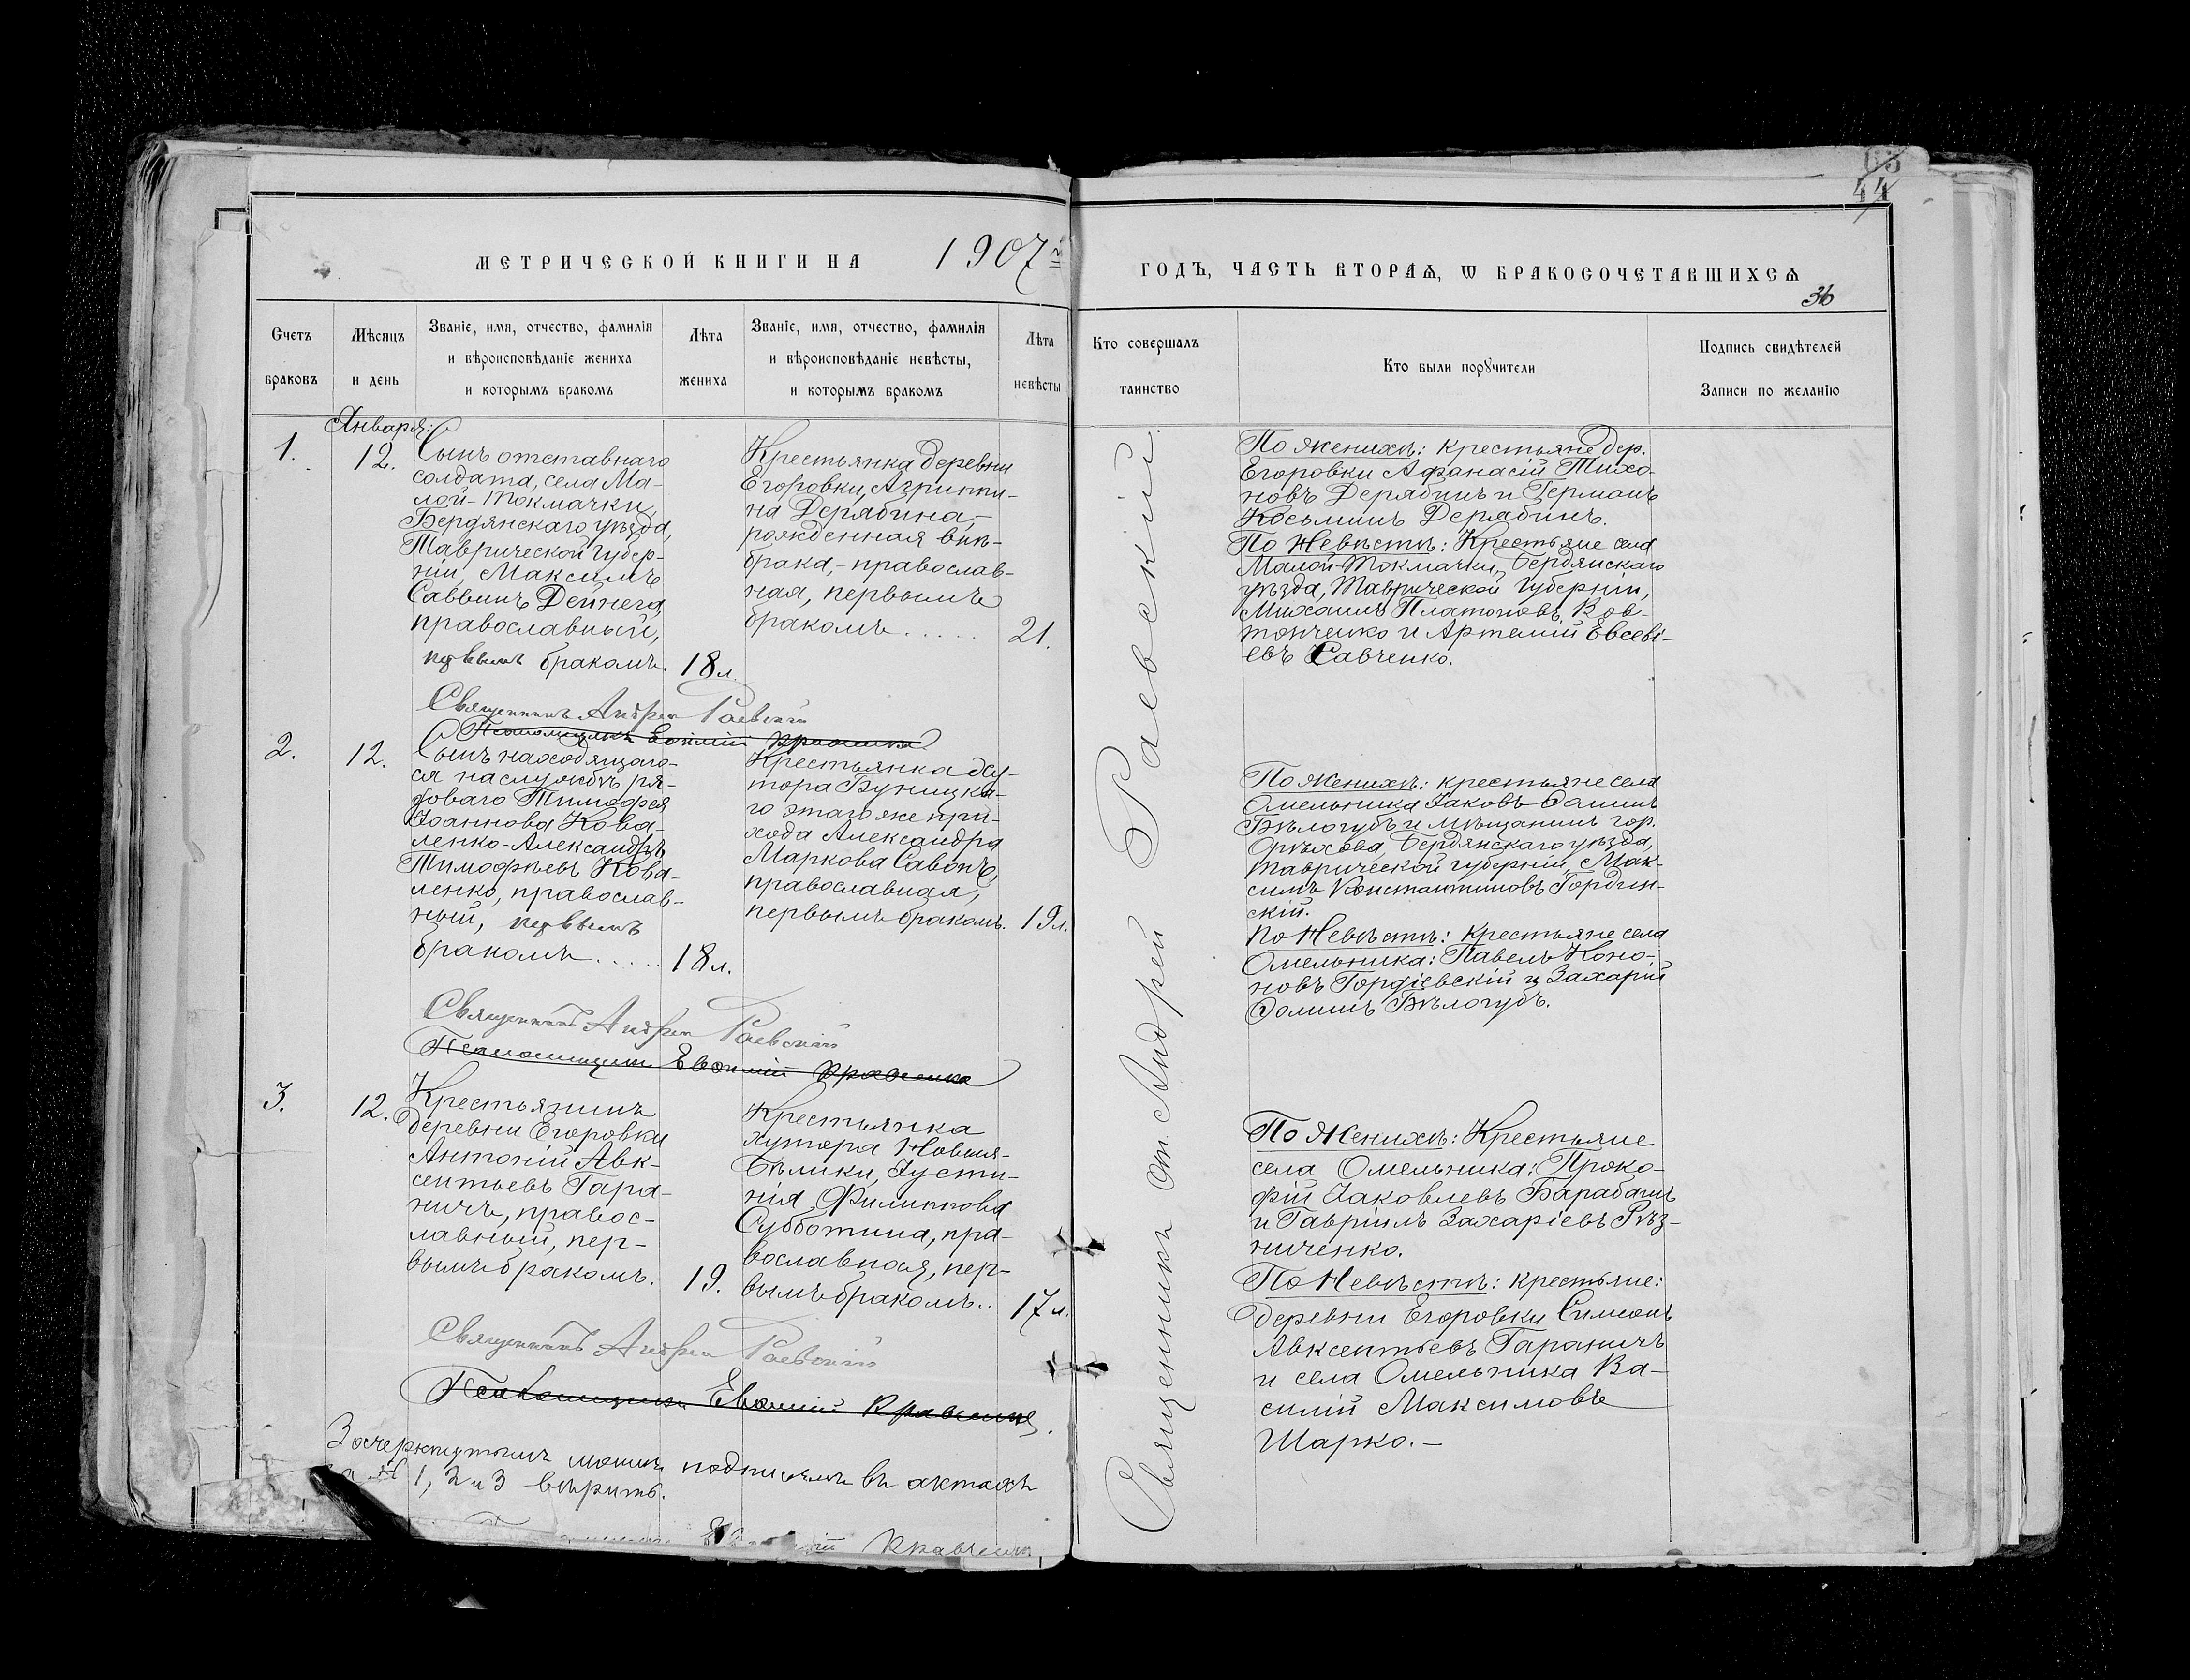 65
44
МЕТРИЧЕСКОЙ КНИГИ НА 1907 й
ГОДЪ, ЧАСТЬ ВТОРАѦ, Ѡ БРАКОСОЧЕТАВШИХСѦ
36
Счетъ
браковъ
Мѣсяцъ
и день
Званіе, имя, отчество, фамилія
и вѣроисповѣданіе жениха
и которымъ бракомъ
Лѣта
жениха
Званіе, имя, отчество, фамилія
и вѣроисповѣданіе невѣсты,
и которымъ бракомъ
Лѣта
невѣсты
Кто совершалъ
таинство
Кто были порꙋчители
Подпись свидѣтелей
Записи по желанію
Января:
1.
12.
Сынъ отставнаго
солдата, села Ма-
лой-Токмачки,
Бердянскаго уѣзда,
Таврической губер-
ніи, Максимъ
Саввинъ Дейнега,
православный,
первымъ бракомъ.
18 л.
Крестьянка деревни
Егоровки, Агриппи-
на Дерябина,-
рожденная внѣ-
брака,- православ-
ная, первымъ
бракомъ.....
21.
По женихѣ: крестьяне дер.
Егоровки Афанасій Тихо-
новъ Дерябинъ и Германъ
Косьминъ Дерябинъ.
По Невѣстѣ: Крестьяне села
Малой-Токмачки, Бердянскаго
уѣзда, Таврической губерніи,
Михаилъ Платоновъ Ков-
тонченко и Артемій Евсеві-
евъ Савченко.
Священникъ Андрей Раевскій
Псаломщикъ Евѳимій Кравченко
2.
12.
Сынъ находящаго-
ся на службѣ ря-
доваго Тимофея
Іоаннова Кова-
ленко-Александръ
Тимофѣевъ Кова-
ленко, православ-
ный, первымъ
бракомъ.....
18 л.
Крестьянка ху-
тора Буницка-
го этого же при-
хода Александра
Маркова Савонъ,
православная,
первымъ бракомъ.
19 л.
По Женихѣ: крестьяне села
Омельника Іаковъ Ѳоминъ
Бѣлогубъ и мѣщанинъ гор.
Орѣхова, Бердянскаго уѣзда,
Таврической губерніи, Мак-
симъ Константиновъ Гордин-
скій.
По Невѣстѣ: крестьяне села
Омельника: Павелъ Коно-
новъ Гордіевскій и Захарій
Ѳоминъ Бѣлогубъ.
Священникъ Андрей Раевскій
Псаломщикъ Евѳимій Кравченко
3.
12.
Крестьянинъ
деревни Егоровки
Антоній Авк-
сентьевъ Гара-
ничъ, правос-
лавный, пер-
вымъ бракомъ.
19.
Крестьянка
хутора Новоия-
Бѣлики, Іусти-
нія Филиппова
Субботина, пра-
вославная, пер-
вымъ бракомъ..
17 л.
По Женихѣ: Крестьяне
села Омельника: Проко-
фій Іаковлевъ Барабашъ
и Гавріилъ Захаріевъ Рѣз-
ниченко.
По Невѣстѣ: крестьяне:
деревни Егоровки Симеонъ
Авксентьевъ Гараничъ
и села Омельника Ва-
силій Максимовъ
Шарко.-
Священникъ Андрей Раевскій
Псаломщикъ Евѳимій Кравченко.
Зачеркнутымъ моимъ подписямъ въ актахъ
№ 1, 2 и 3 вѣрить.
Кравченко
Священникъ От. Андрей Раевскій.